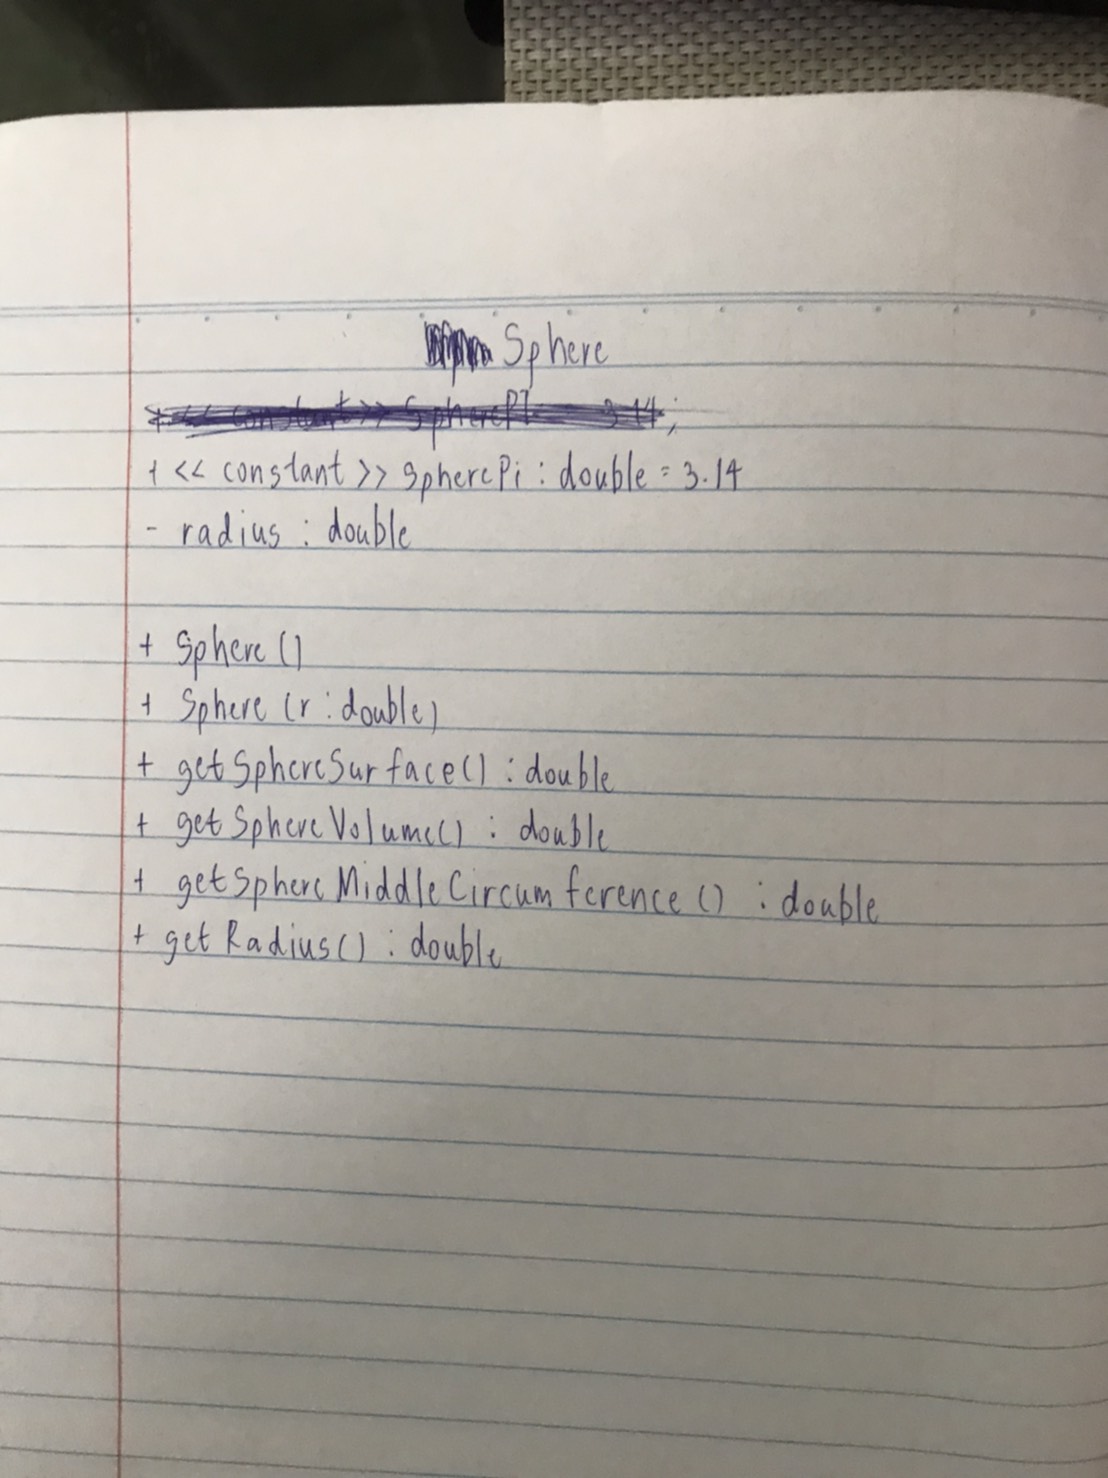 Sphere
+ << constant >> SpherePI 3.14;
+ << constant >> SpherePi : double = 3.14
- radius : double
+ Sphere ()
+ Sphere (r : double)
+ getSphereSurface() : double
+ getSphereVolume() : double
+ getSphereMiddleCircumference () : double
+ getRadius() : double